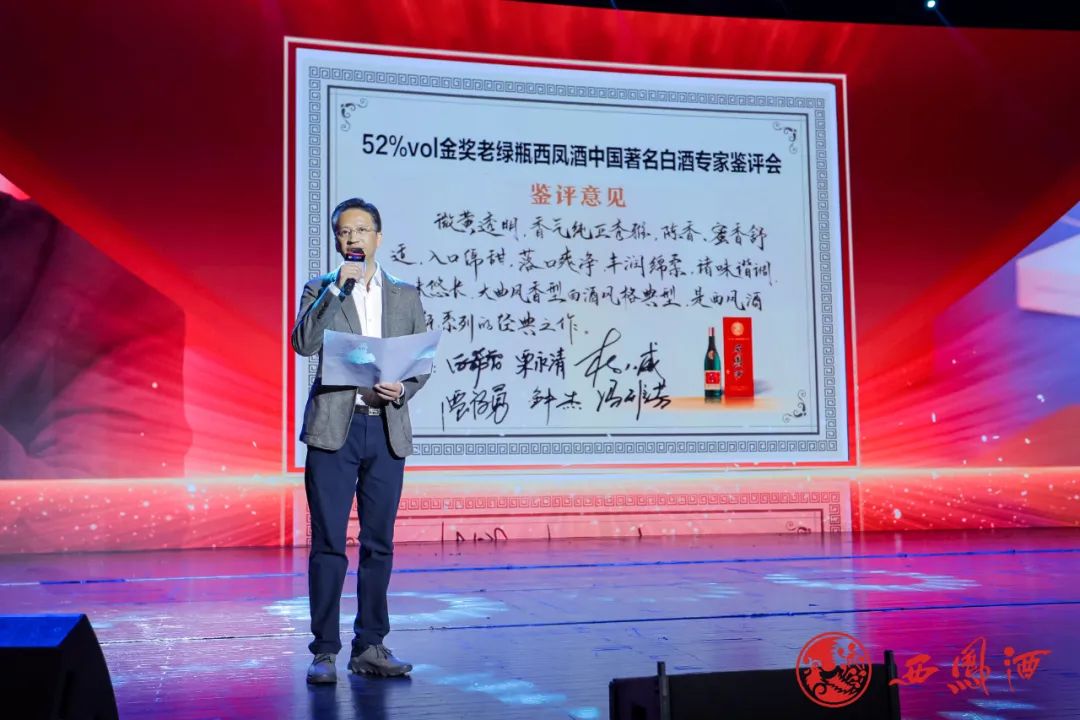 52%vol金奖老绿瓶西凤酒中国著名白酒专家鉴评会
鉴评意见
微黄透明、香气纯正香雅、陈香、蜜香舒
适、入口绵甜、落口爽净、丰润绵柔、诸味谐调、
悠长、大曲凤香型白酒风格典型、是西凤酒
系列的经典之作。
栗永清
贾智勇 钟杰
西鳳酒